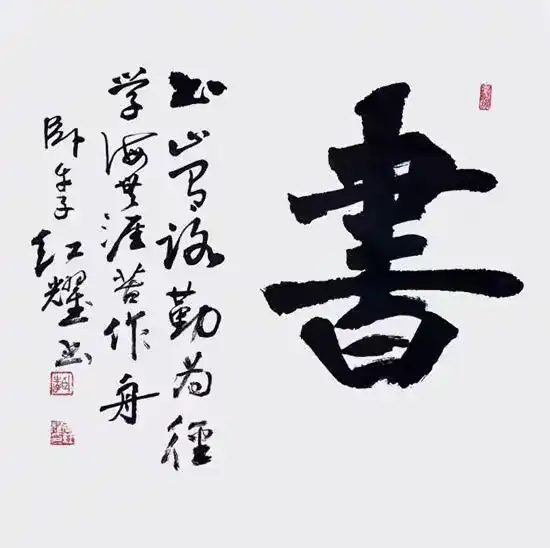 書
书山有路勤为径
学海无涯苦作舟
卧牛子红耀书